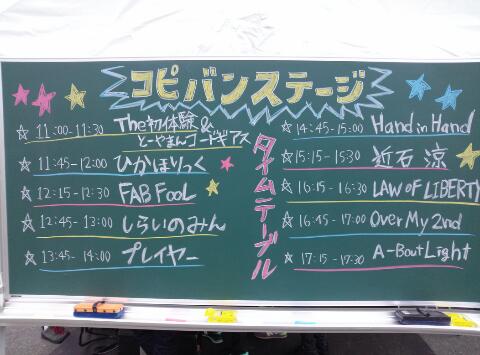 コピバンステージ
タイムテーブル
☆11:00-11:30 The初体験&
とーやまんコードギアス
☆11:45-12:00 ひかほりっく
☆12:15-12:30 FAB FooL
☆12:45-13:00 しらいのみん
☆13:45-14:00 プレイヤー
☆14:45-15:00 Hand in Hand
☆15:15-1530 近石 涼
☆16:15-16:30 LAW oF LIBERTY
☆16:45-17:00 Over My 2nd
☆17:15-17:30 A-Bout Light